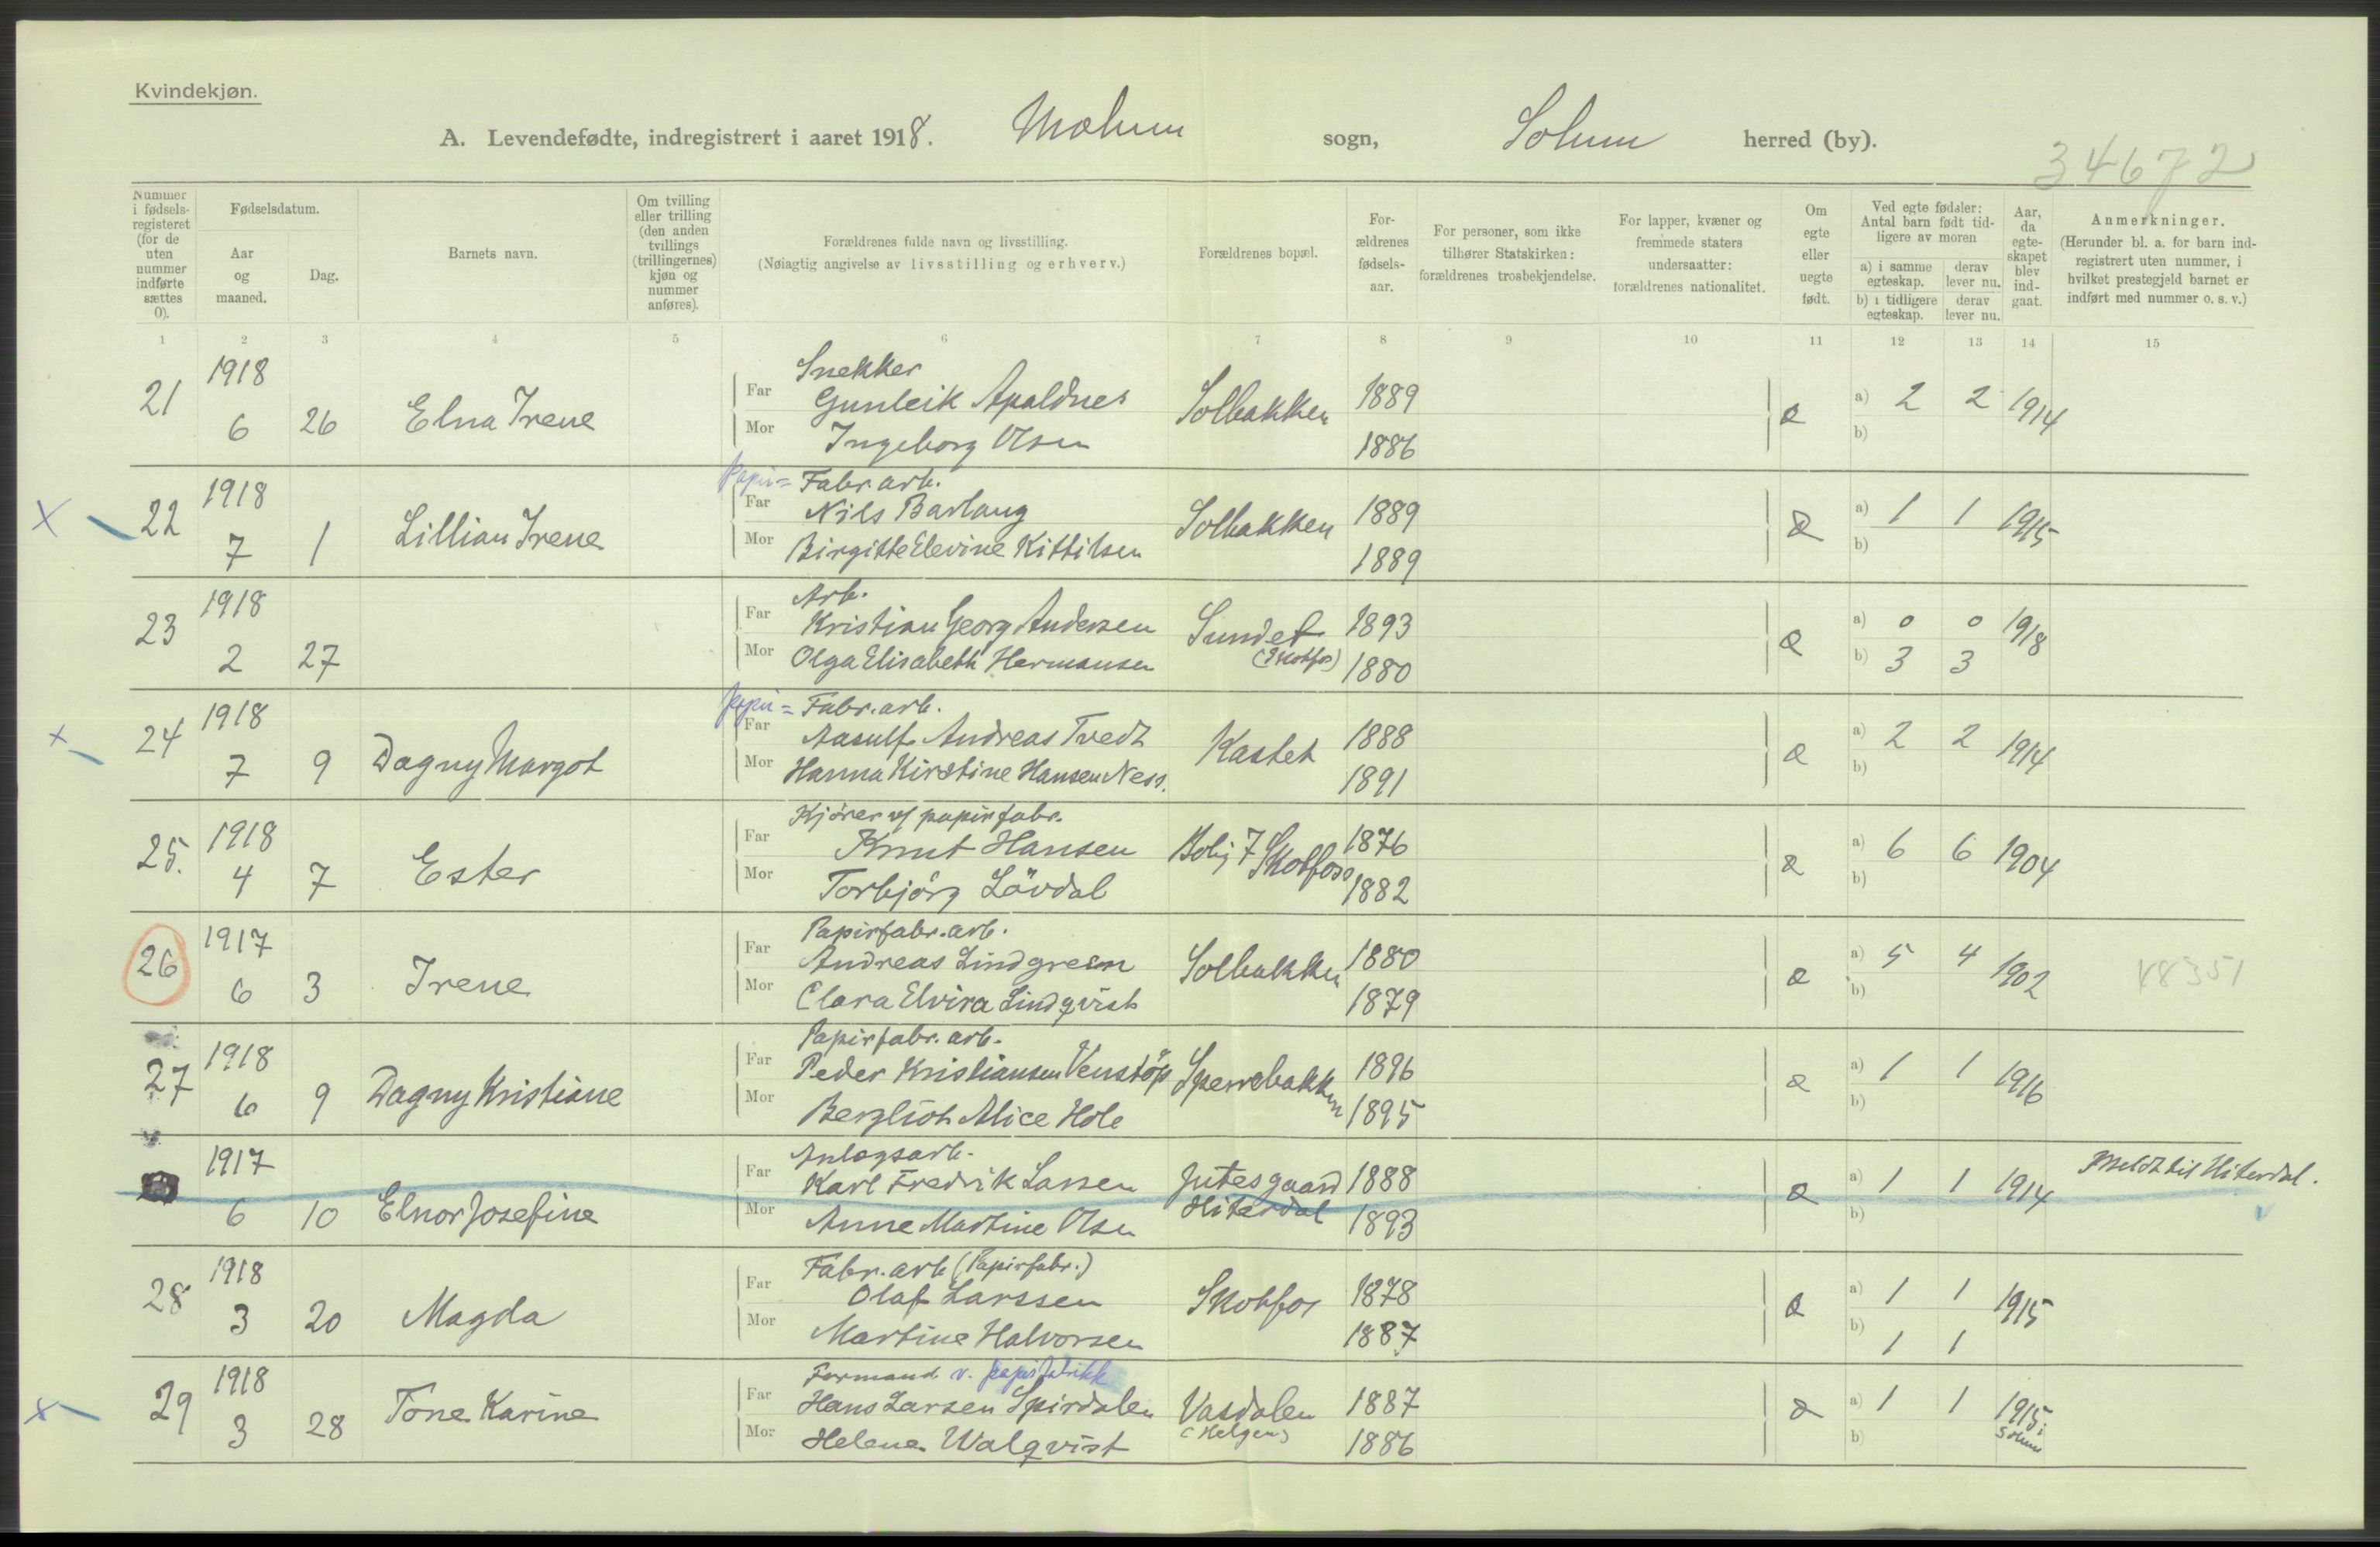 Kvindekjøn.
A. Levendefødte, indregistrert i aaret 1918. Mælum sogn, Solum herred (by).
34672
Nummer i fødsels-registeret (for de uten nummer indførte sættes 0).
Fødselsdatum.
Aar og maaned.
Dag.
Barnets navn.
Om tvilling eller trilling (den anden tvillings (trillingernes) kjøn og nummer anføres).
Forældrenes fulde navn og livsstilling.
(Nøiagtig angivelse av livsstilling og erhverv.)
Forældrenes bopæl.
For-ældrenes fødsels-aar.
For personer, som ikke tilhører Statskirken: forældrenes trosbekjendelse.
For lapper, kvæner og fremmede staters undersaatter: forældrenes nationalitet.
Om egte eller uegte født.
Ved egte fødsler: Antal barn født tid-ligere av moren
a) i samme egteskap. derav lever nu.
b) i tidligere egteskap. derav lever nu.
Aar, da egte-skapet blev ind-gaat.
Anmerkninger.
(Herunder bl. a. for barn ind-registrert uten nummer, i hvilket prestegjeld barnet er indført med nummer o. s. v.)
1 2 3 4 5 6 7 8 9 10 11 12 13 14 15
21 1918 6 26 Elna Irene
Snekker
Far Gunleik Apaldnes Solbakken 1889 æ a) 2 2 1914
Mor Ingeborg Olsen 1886 b)
X 22 1918 7 1 Lillian Irene
Papir= Fabr.arb.
Far Nils Barlaug Solbakken 1889 æ a) 1 1 1915
Mor Birgitte Elevine Kittilsen 1889 b)
23 1918 2 27
Arb.
Far Kristian Georg Andersen Sundet (Skotfos) 1893 æ a) 0 0 1918
Mor Olga Elisabeth Hermansen 1880 b) 3 3
x 24 1918 7 9 Dagny Margot
papir= Fabr.arb.
Far Aasulf Andreas Tvedt Kastet 1888 æ a) 2 2 1914
Mor Hanna Kirstine Hansen Ness. 1891 b)
25. 1918 4 7 Ester
Kjører v/ papirfabr.
Far Knut Hansen Bolig 7 Skotfoss 1876 æ a) 6 6 1904
Mor Torbjörg Lövdal 1882 b)
26 1917 6 3 Irene
Papirfabr.arb.
Far Andreas Lindgreen Solbakken 1880 æ a) 5 4 1902 48351
Mor Clara Elvira Lindqvist 1879 b)
27 1918 6 9 Dagny Kristiane
Papirfabr.arb.
Far Peder Kristiansen Venstöp Sperrebakken 1896 æ a) 1 1 1916
Mor Bergliot Alice Hole 1895 b)
1917 6 10 Elnor Josefine
Anlægsarb.
Far Karl Fredrik Larsen Jutesgaard Hiterdal 1888 æ a) 1 1 1914 Meldt til Hiterdal.
Mor Anne Martine Olsen 1893 b)
28 1918 3 20 Magda
Fabr.arb (Papirfabr.)
Far Olaf Larssen Skotfos 1878 æ a) 1 1 1915
Mor Martine Halvorsen 1887 b) 1 1
x 29 1918 3 28 Tone Karine
Formand v. papirfabrikk
Far Hans Larsen Spirdalen Vasdalen (Helgen) 1887 æ a) 1 1 1915 i Solum
Mor Helene Walqvist 1886 b)